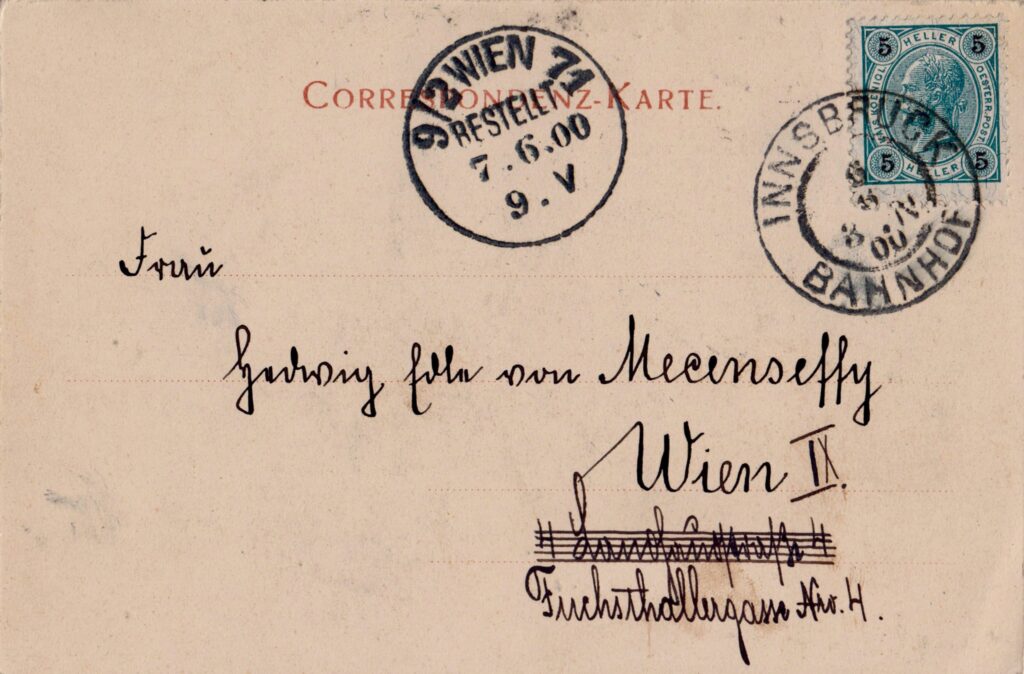 CORRESPONDENZ-KARTE.
9/2 WIEN 71
BESTELLT
7.6.00
9.V
5 HELLER 5
KAIS. KOENIGL. OESTERR. POST
5 HELLER 5
INNSBRUCK
00
BAHNHOF
Frau
Hedwig Edle von Mecenseffy
Wien IX.
Fuchsthallergasse Nro. 4.